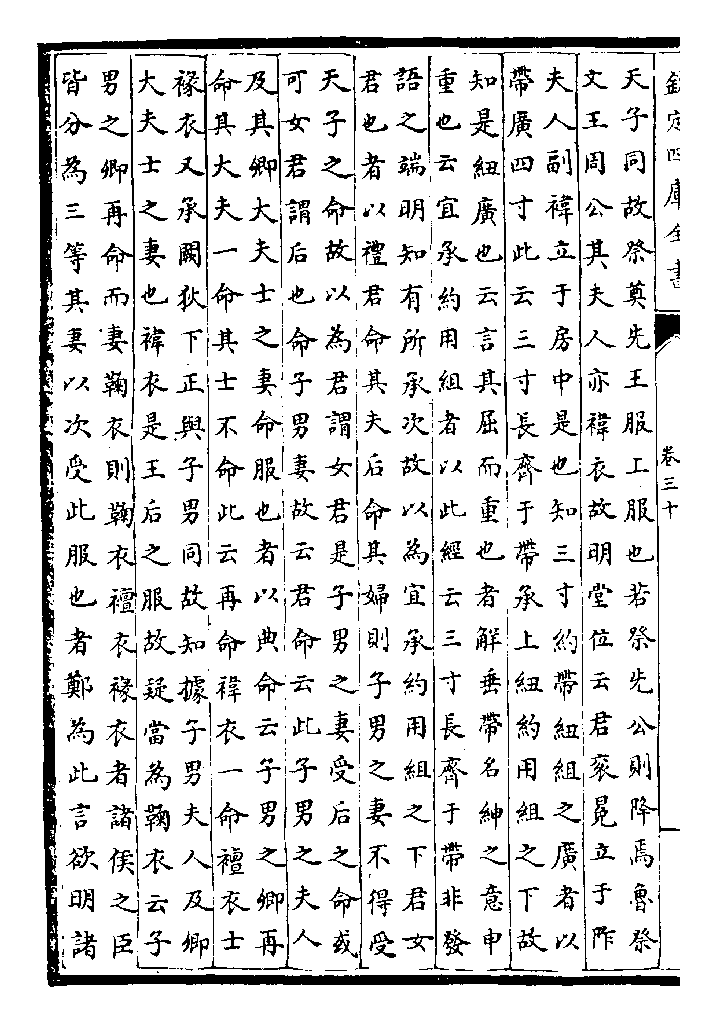 欽定四庫全書
卷三十
天子同故祭奠先王服上服也若祭先公則降焉魯祭
文王周公其夫人亦褘衣故明堂位云君衮冕立于阼
夫人副褘立于房中是也知三寸約帶紐組之廣者以
帶廣四寸此云三寸長齊于帶承上紐約用組之下故
知是紐廣也云言其屈而重也者解垂帶名紳之意申
重也云宜承約用組者以此經云三寸長齊于帶非發
語之端明知有所承次故以為宜承約用組之下君女
君也者以禮君命其夫后命其婦則子男之妻不得受
天子之命故以為君謂女君是子男之妻受后之命或
可女君謂后也命子男妻故云君命云此子男之夫人
及其卿大夫士之妻命服也者以典命云子男之卿再
命其大夫一命其士不命此云再命褘衣一命襢衣士
褖衣又承闕狄下正與子男同故知據子男夫人及卿
大夫士之妻也褘衣是王后之服故疑當為鞠衣云子
男之卿再命而妻鞠衣則鞠衣襢衣褖衣者諸侯之臣
皆分為三等其妻以次受此服也者鄭為此言欲明諸